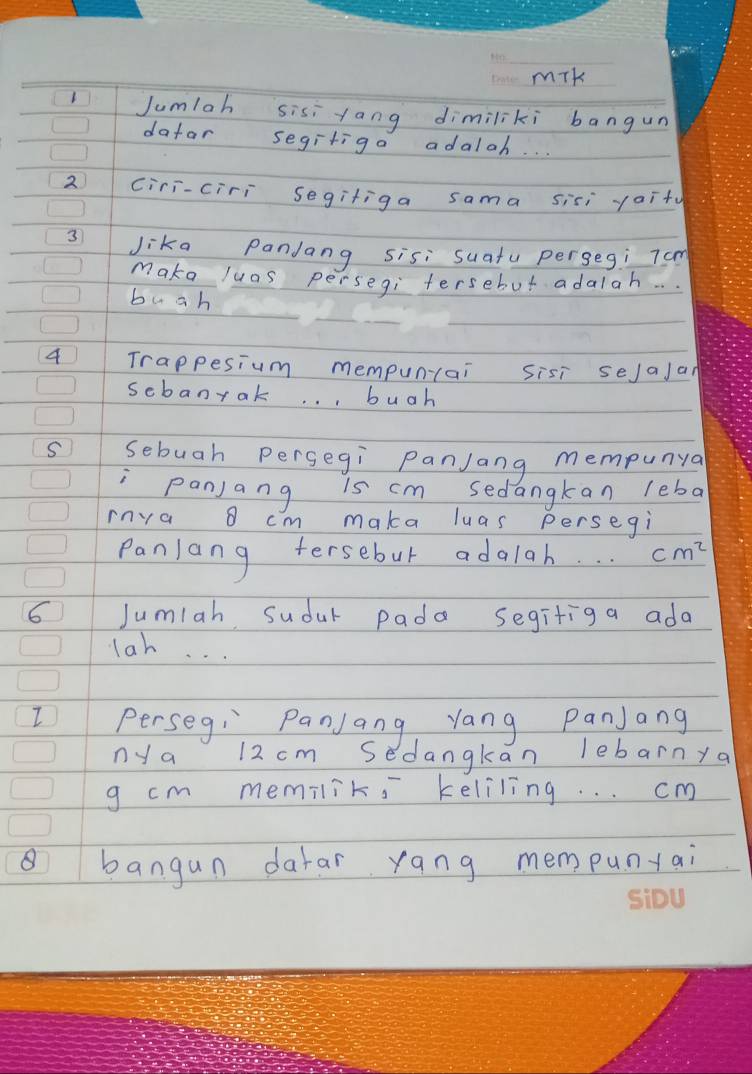 No.
Date:
MTK
1 Jumlah sisi yang dimiliki bangun
datar segitiga adalah...
2 Ciri-Ciri segitiga sama sisi yaitu
3 Jika panjang sisi suatu persegi 7cm
Maka luas persegi tersebut adalah...
buah
4 Trappesium mempunyai sisi sejajar
sebanyak ... buah
5 Sebuah persegi panjang mempunya
i panjang 15 cm sedangkan leba
rnya 8 cm maka luas persegi
panjang tersebut adalah ... cm²
6 Jumlah sudut pada segitiga ada
lah ...
7 Persegi panjang yang panjang
nya 12 cm sedangkan lebarnya
9 cm memiliki keliling ... cm
8 bangun datar yang mempunyai
SiDU